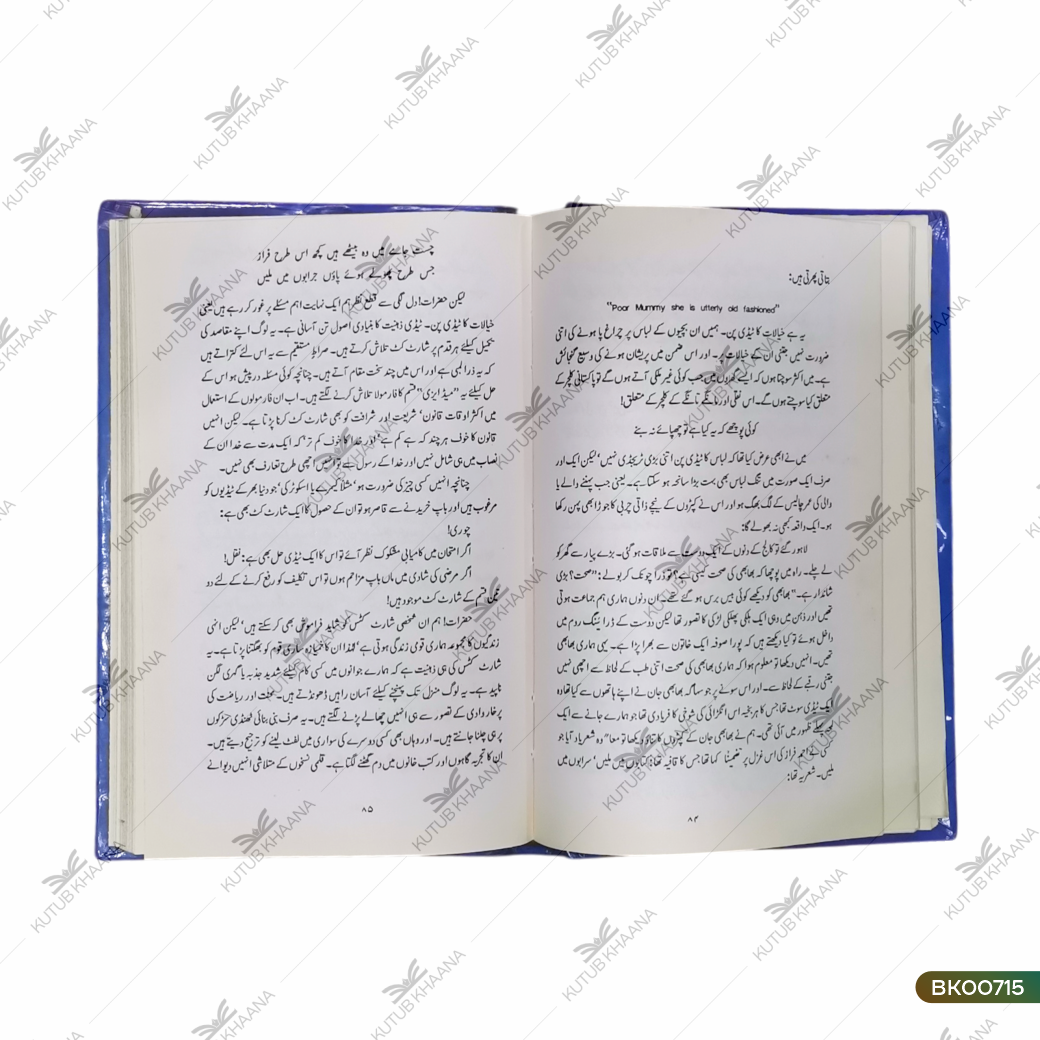 بتاتی پھرتی ہیں:
"Poor Mummy she is utterly old fashioned"
یہ ہے خیالات کا ٹیڈی پن۔ ہمیں ان بچیوں کے لباس پر چراغ پا ہونے کی اتنی
ضرورت نہیں جتنی ان کے خیالات پر۔ اور اس ضمن میں پریشان ہونے کی وسیع گنجائش
ہے۔ میں اکثر سوچتا ہوں کہ ایسے گھروں میں جب کوئی غیر ملکی آتے ہوں گے تو پاکستانی کلچر کے
متعلق کیا سوچتے ہوں گے۔ اس نقلی اور مانگے تانگے کے کلچر کے متعلق!
کوئی پوچھے کہ یہ کیا ہے تو چھپائے نہ بنے
میں نے ابھی عرض کیا تھا کہ لباس کا ٹیڈی پن اتنی بڑی ٹریجڈی نہیں' لیکن ایک اور
صرف ایک صورت میں تنگ لباس بھی بہت بڑا سانحہ ہو سکتا ہے۔ یعنی جب پہننے والے یا
والی کی عمر چالیس کے لگ بھگ ہو اور اس نے کپڑوں کے نیچے ذاتی چربی کا جوڑا بھی پہن رکھا
ہو۔ ایک واقعہ کبھی نہ بھولے گا:
لاہور گئے تو کالج کے دنوں کے ایک دوست سے ملاقات ہو گئی۔ بڑے پیار سے گھر کو
لے چلے۔ راہ میں پوچھا کہ بھابھی کی صحت کیسی ہے؟ تو ذرا چونک کر بولے: "صحت؟ بڑی
شاندار ہے۔" بھابھی کو دیکھے کوئی بیس برس ہو گئے تھے۔ ان دنوں ہماری ہم جماعت ہوتی
تھیں اور ذہن میں وہی ایک ہلکی پھلکی لڑکی کا تصور تھا لیکن دوست کے ڈرائینگ روم میں
داخل ہوئے تو کیا دیکھتے ہیں کہ پورا صوفہ ایک خاتون سے بھرا پڑا ہے۔ یہی ہماری بھابھی
تھیں۔ انہیں دیکھا تو معلوم ہوا کہ ہماری بھابھی کی صحت اتنی طب کے لحاظ سے اچھی نہیں
جتنی رقبے کے لحاظ سے۔ اور اس سونے پر جو سہاگہ بھابھی جان نے اپنے ہاتھوں سے کیا تھا وہ
ایک ٹیڈی سوٹ تھا جس کا ہر بخیہ اس انگڑائی کی شوخی کا فریادی تھا جو ہمارے جانے سے ایک
لمحہ پہلے ظہور میں آئی تھی۔ ہم نے بھابھی جان کے کپڑوں کا تناؤ دیکھا تو معا" وہ شعر یاد آیا جو
کسی نے احمد فراز کی اس غزل پر تضمیناً کہا تھا جس کا قافیہ تھا: کتابوں میں ملیں' سرابوں میں
ملیں۔ شعر یہ تھا:
۸۴
چست جامے میں وہ بیٹھے ہیں کچھ اس طرح فراز
جس طرح پھولے ہوئے پاؤں جرابوں میں ملیں
لیکن حضرات! دل لگی سے قطع نظر ہم ایک نہایت اہم مسئلے پر غور کر رہے ہیں یعنی
خیالات کا ٹیڈی پن۔ ٹیڈی ذہنیت کا بنیادی اصول تن آسانی ہے۔ یہ لوگ اپنے مقاصد کی
تکمیل کیلئے ہر قدم پر شارٹ کٹ تلاش کرتے ہیں۔ صراط مستقیم سے یہ اس لئے کتراتے ہیں
کہ یہ ذرا لمبی ہے اور اس میں چند سخت مقام آتے ہیں۔ چنانچہ کوئی مسئلہ درپیش ہو اس کے
حل کیلئے یہ "میڈ ایزی" قسم کا فارمولا تلاش کرنے لگتے ہیں۔ اب ان فارمولوں کے استعمال
میں اکثر اوقات قانون' شریعت اور شرافت کو بھی شارٹ کٹ کرنا پڑتا ہے۔ لیکن انہیں
قانون کا خوف ہر چند کہ ہے کم ہے' اور خدا کا خوف کم تر' کہ ایک مدت سے خدا ان کے
نصاب میں ہی شامل نہیں اور خدا کے رسول سے تو انہیں اچھی طرح تعارف بھی نہیں۔
چنانچہ انہیں کسی چیز کی ضرورت ہو' مثلاً کیمرے یا اسکوٹر کی' جو دنیا بھر کے ٹیڈیوں کو
مرغوب ہیں اور باپ خریدنے سے قاصر ہو تو ان کے حصول کا ایک شارٹ کٹ بھی ہے:
چوری!
اگر امتحان میں کامیابی مشکوک نظر آئے تو اس کا ایک ٹیڈی حل بھی ہے: نقل!
اگر مرضی کی شادی میں ماں باپ مزاحم ہوں تو اس تکلیف کو رفع کرنے کے لئے دو
تین قسم کے شارٹ کٹ موجود ہیں!
حضرات! ہم ان شخصی شارٹ کٹس کو شاید فراموش بھی کر سکتے ہیں' لیکن انہی
زندگیوں کا مجموعہ ہماری قومی زندگی ہوتی ہے' لہٰذا ان کا خمیازہ ساری قوم کو بھگتنا پڑتا ہے۔ یہ
شارٹ کٹس کی ہی ذہنیت ہے کہ ہمارے جوانوں میں کسی کام کیلئے شدید جذبہ یا گہری لگن
ناپید ہے۔ یہ لوگ منزل تک پہنچنے کیلئے آسان راہیں ڈھونڈتے ہیں۔ محنت اور ریاضت کی
پرخار وادی کے تصور سے ہی انہیں چھالے پڑنے لگتے ہیں۔ یہ صرف بنی بنائی ٹھنڈی سڑکوں
پر ہی چلنا جانتے ہیں۔ اور وہاں بھی کسی دوسرے کی سواری میں لفٹ لینے کو ترجیح دیتے ہیں۔
ان کا تجربہ گاہوں اور کتب خانوں میں دم گھٹنے لگتا ہے۔ قلمی نسخوں کے متلاشی انہیں دیوانے
۸۵
KUTUB KHAANA
BK00715